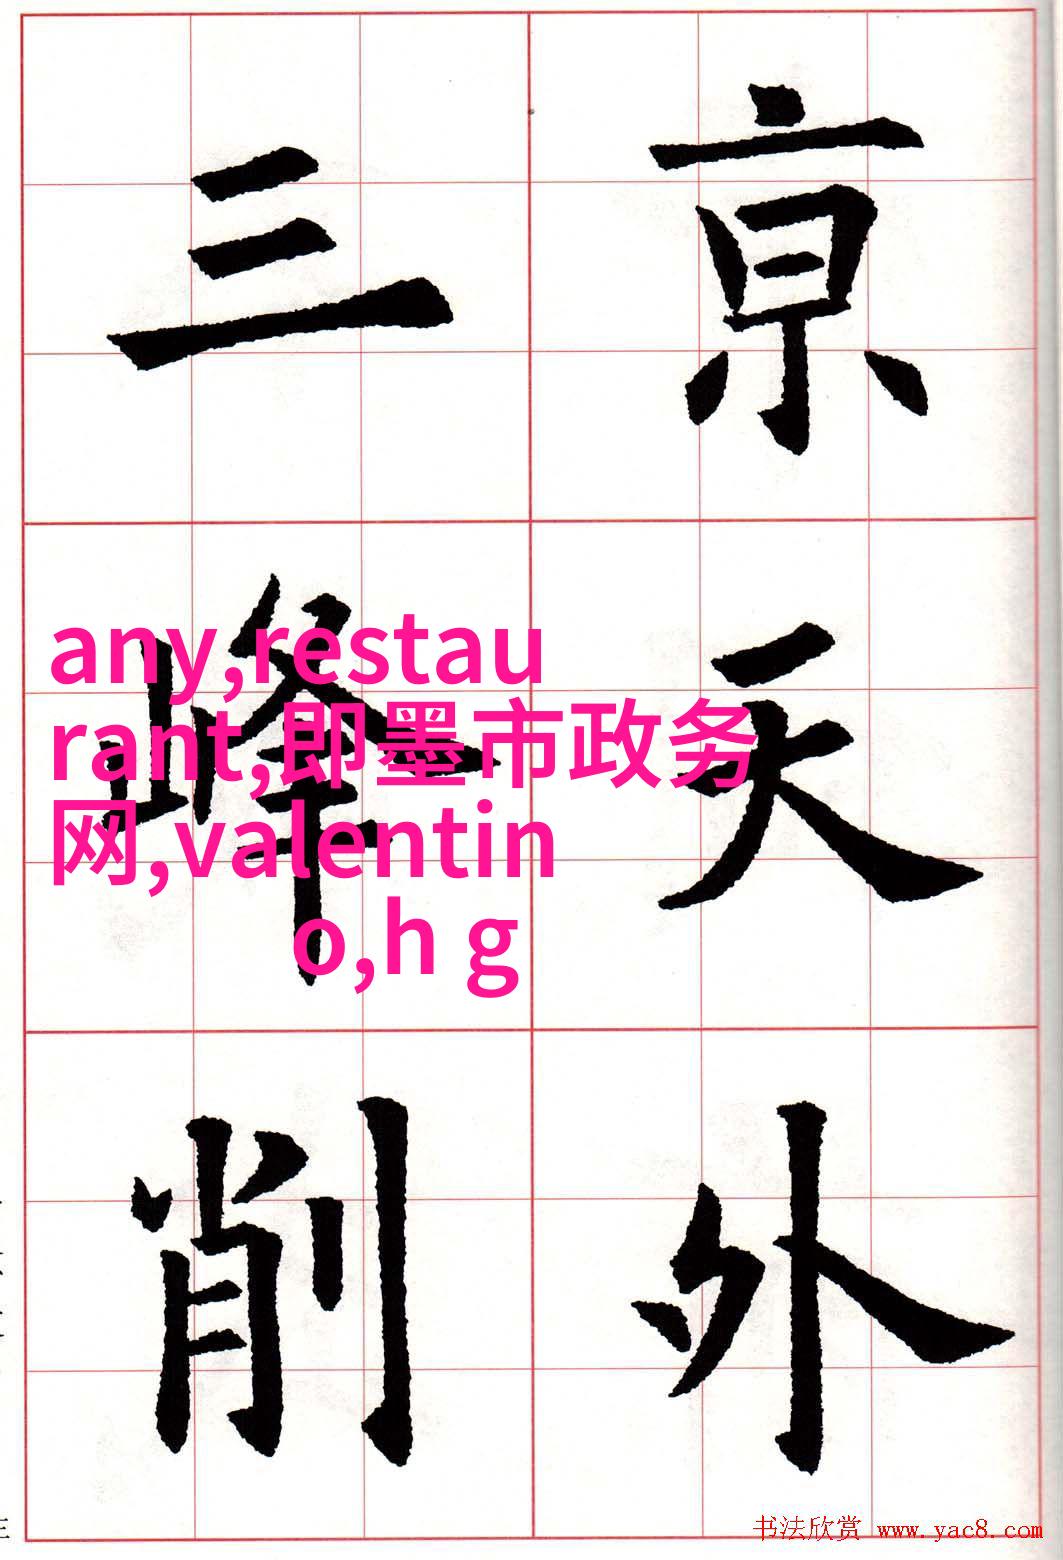 亰天外
三峰削
any,restau
rant,即墨市政务
网,valentin
o,h g
书法欣赏 www.yac8.com